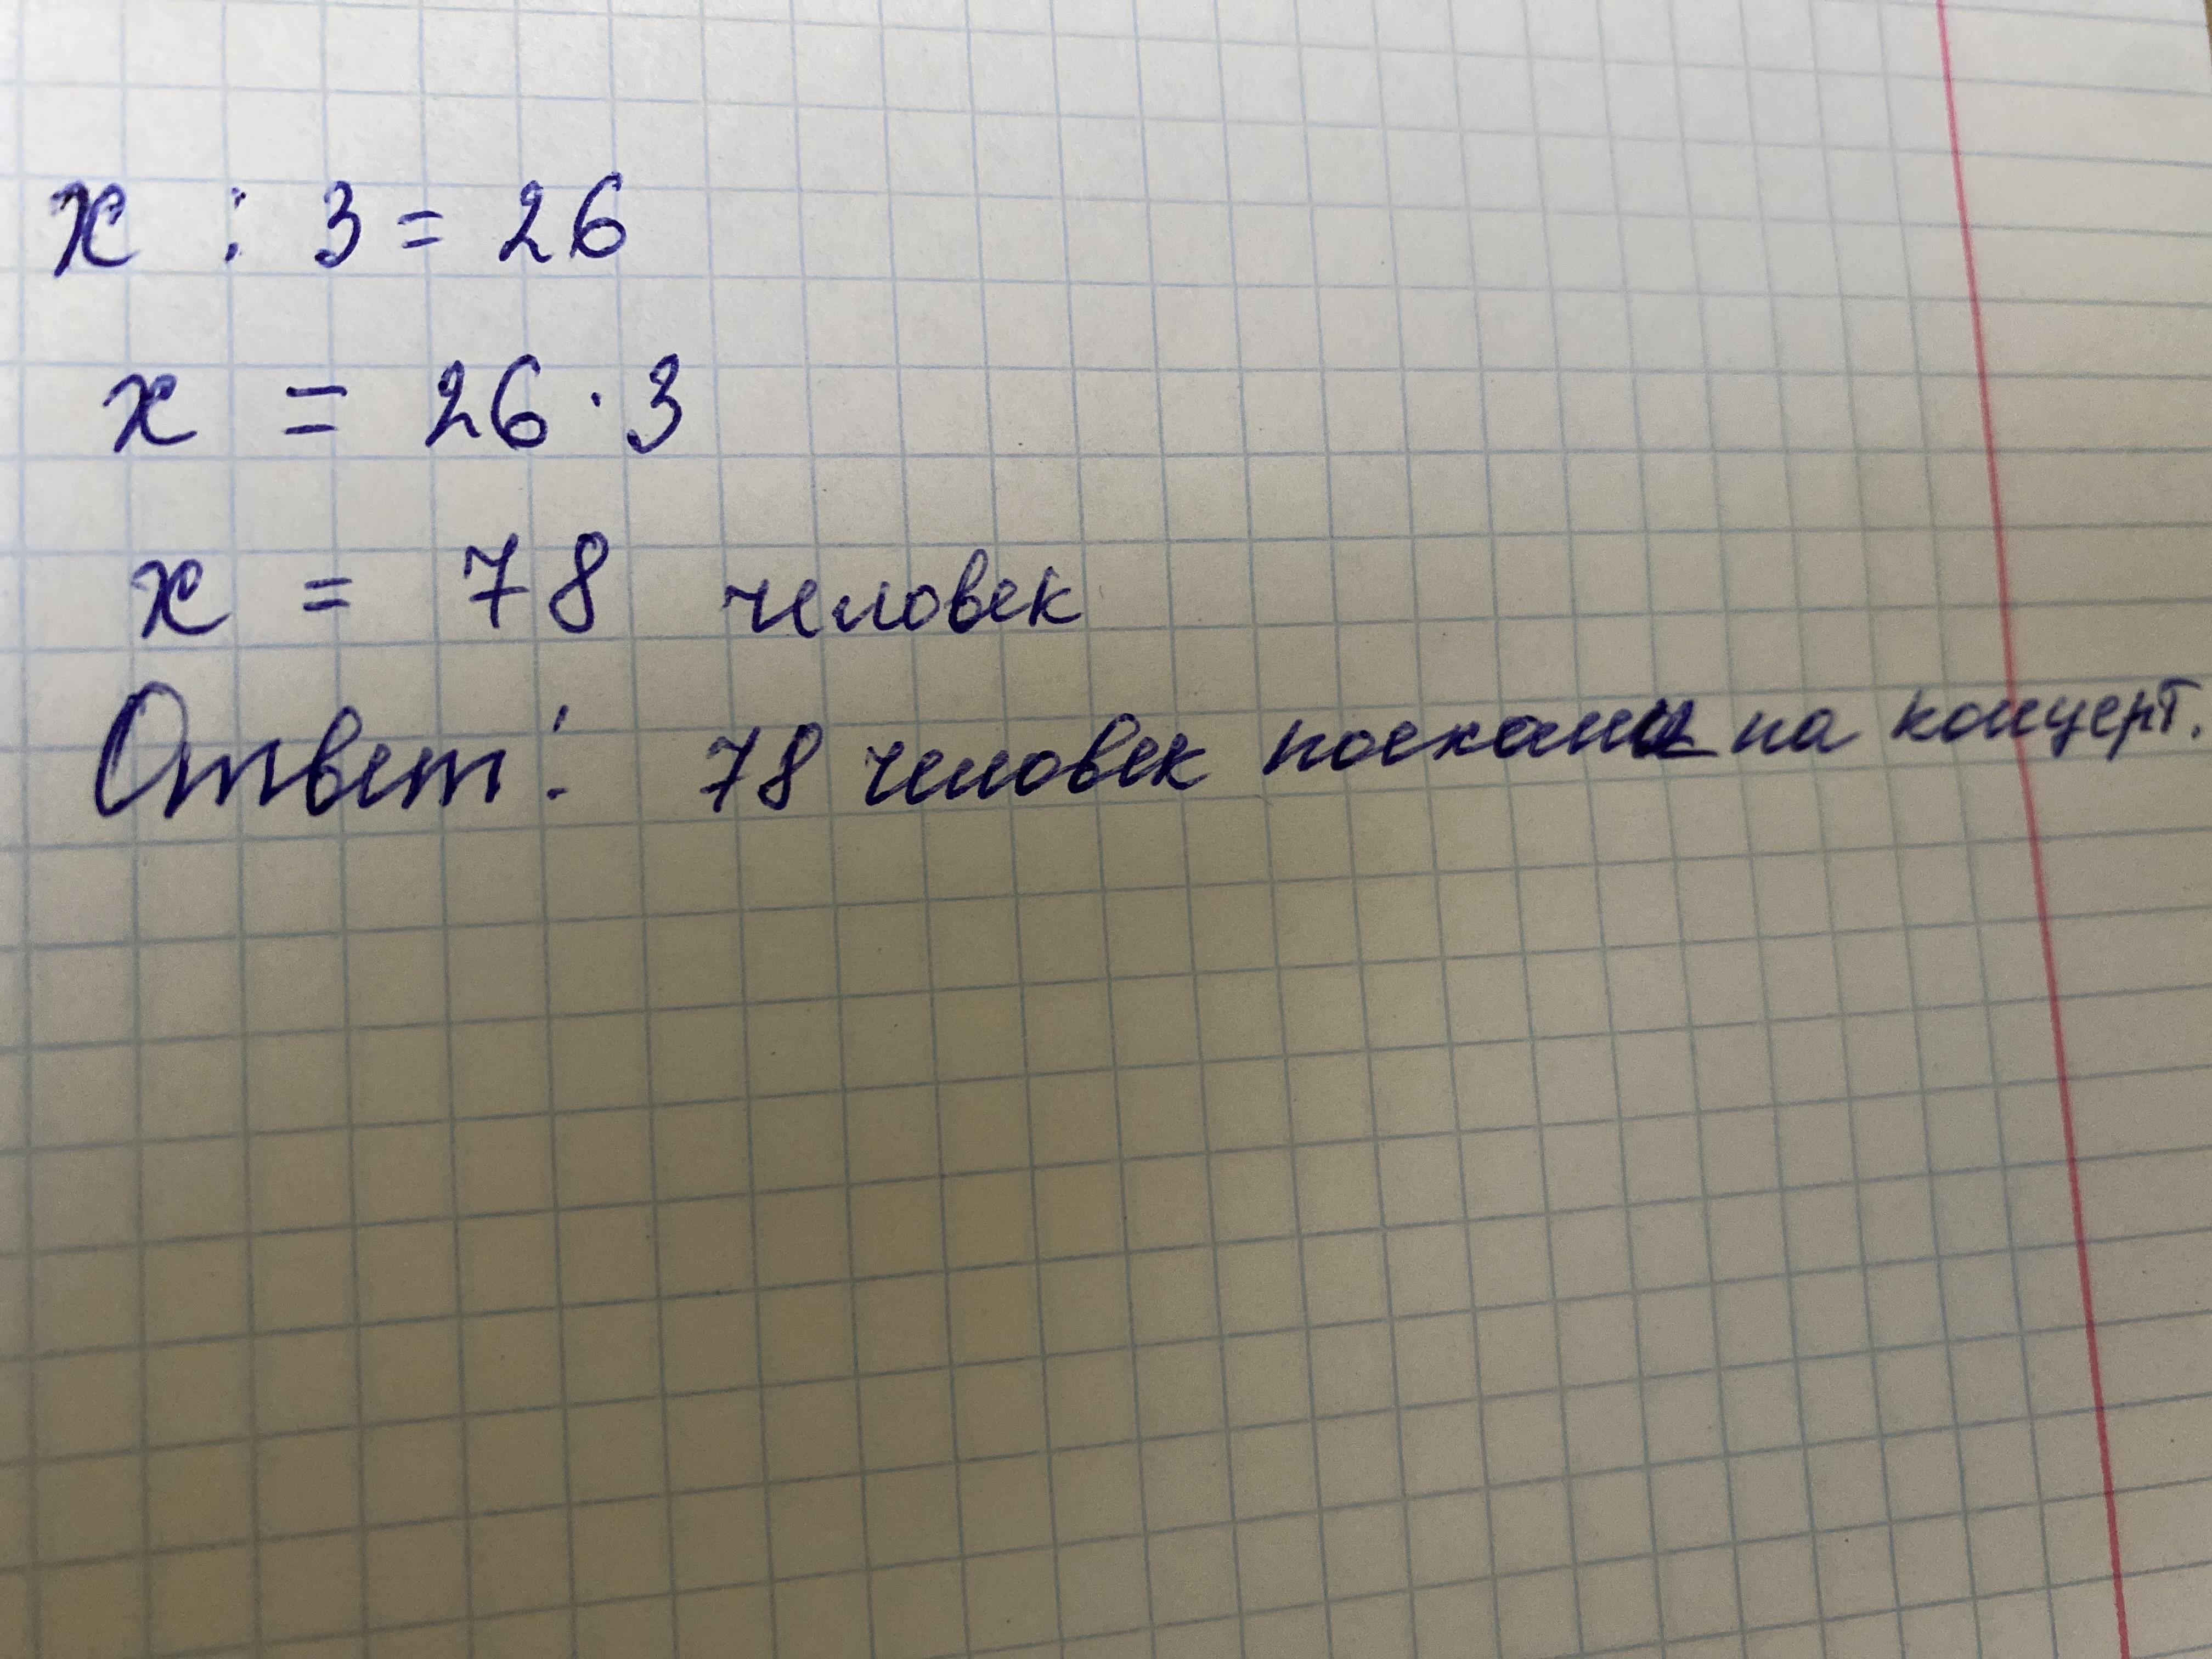 x : 3 = 26
x = 26 · 3
x = 78 человек
Ответ: 78 человек поехали на концерт.